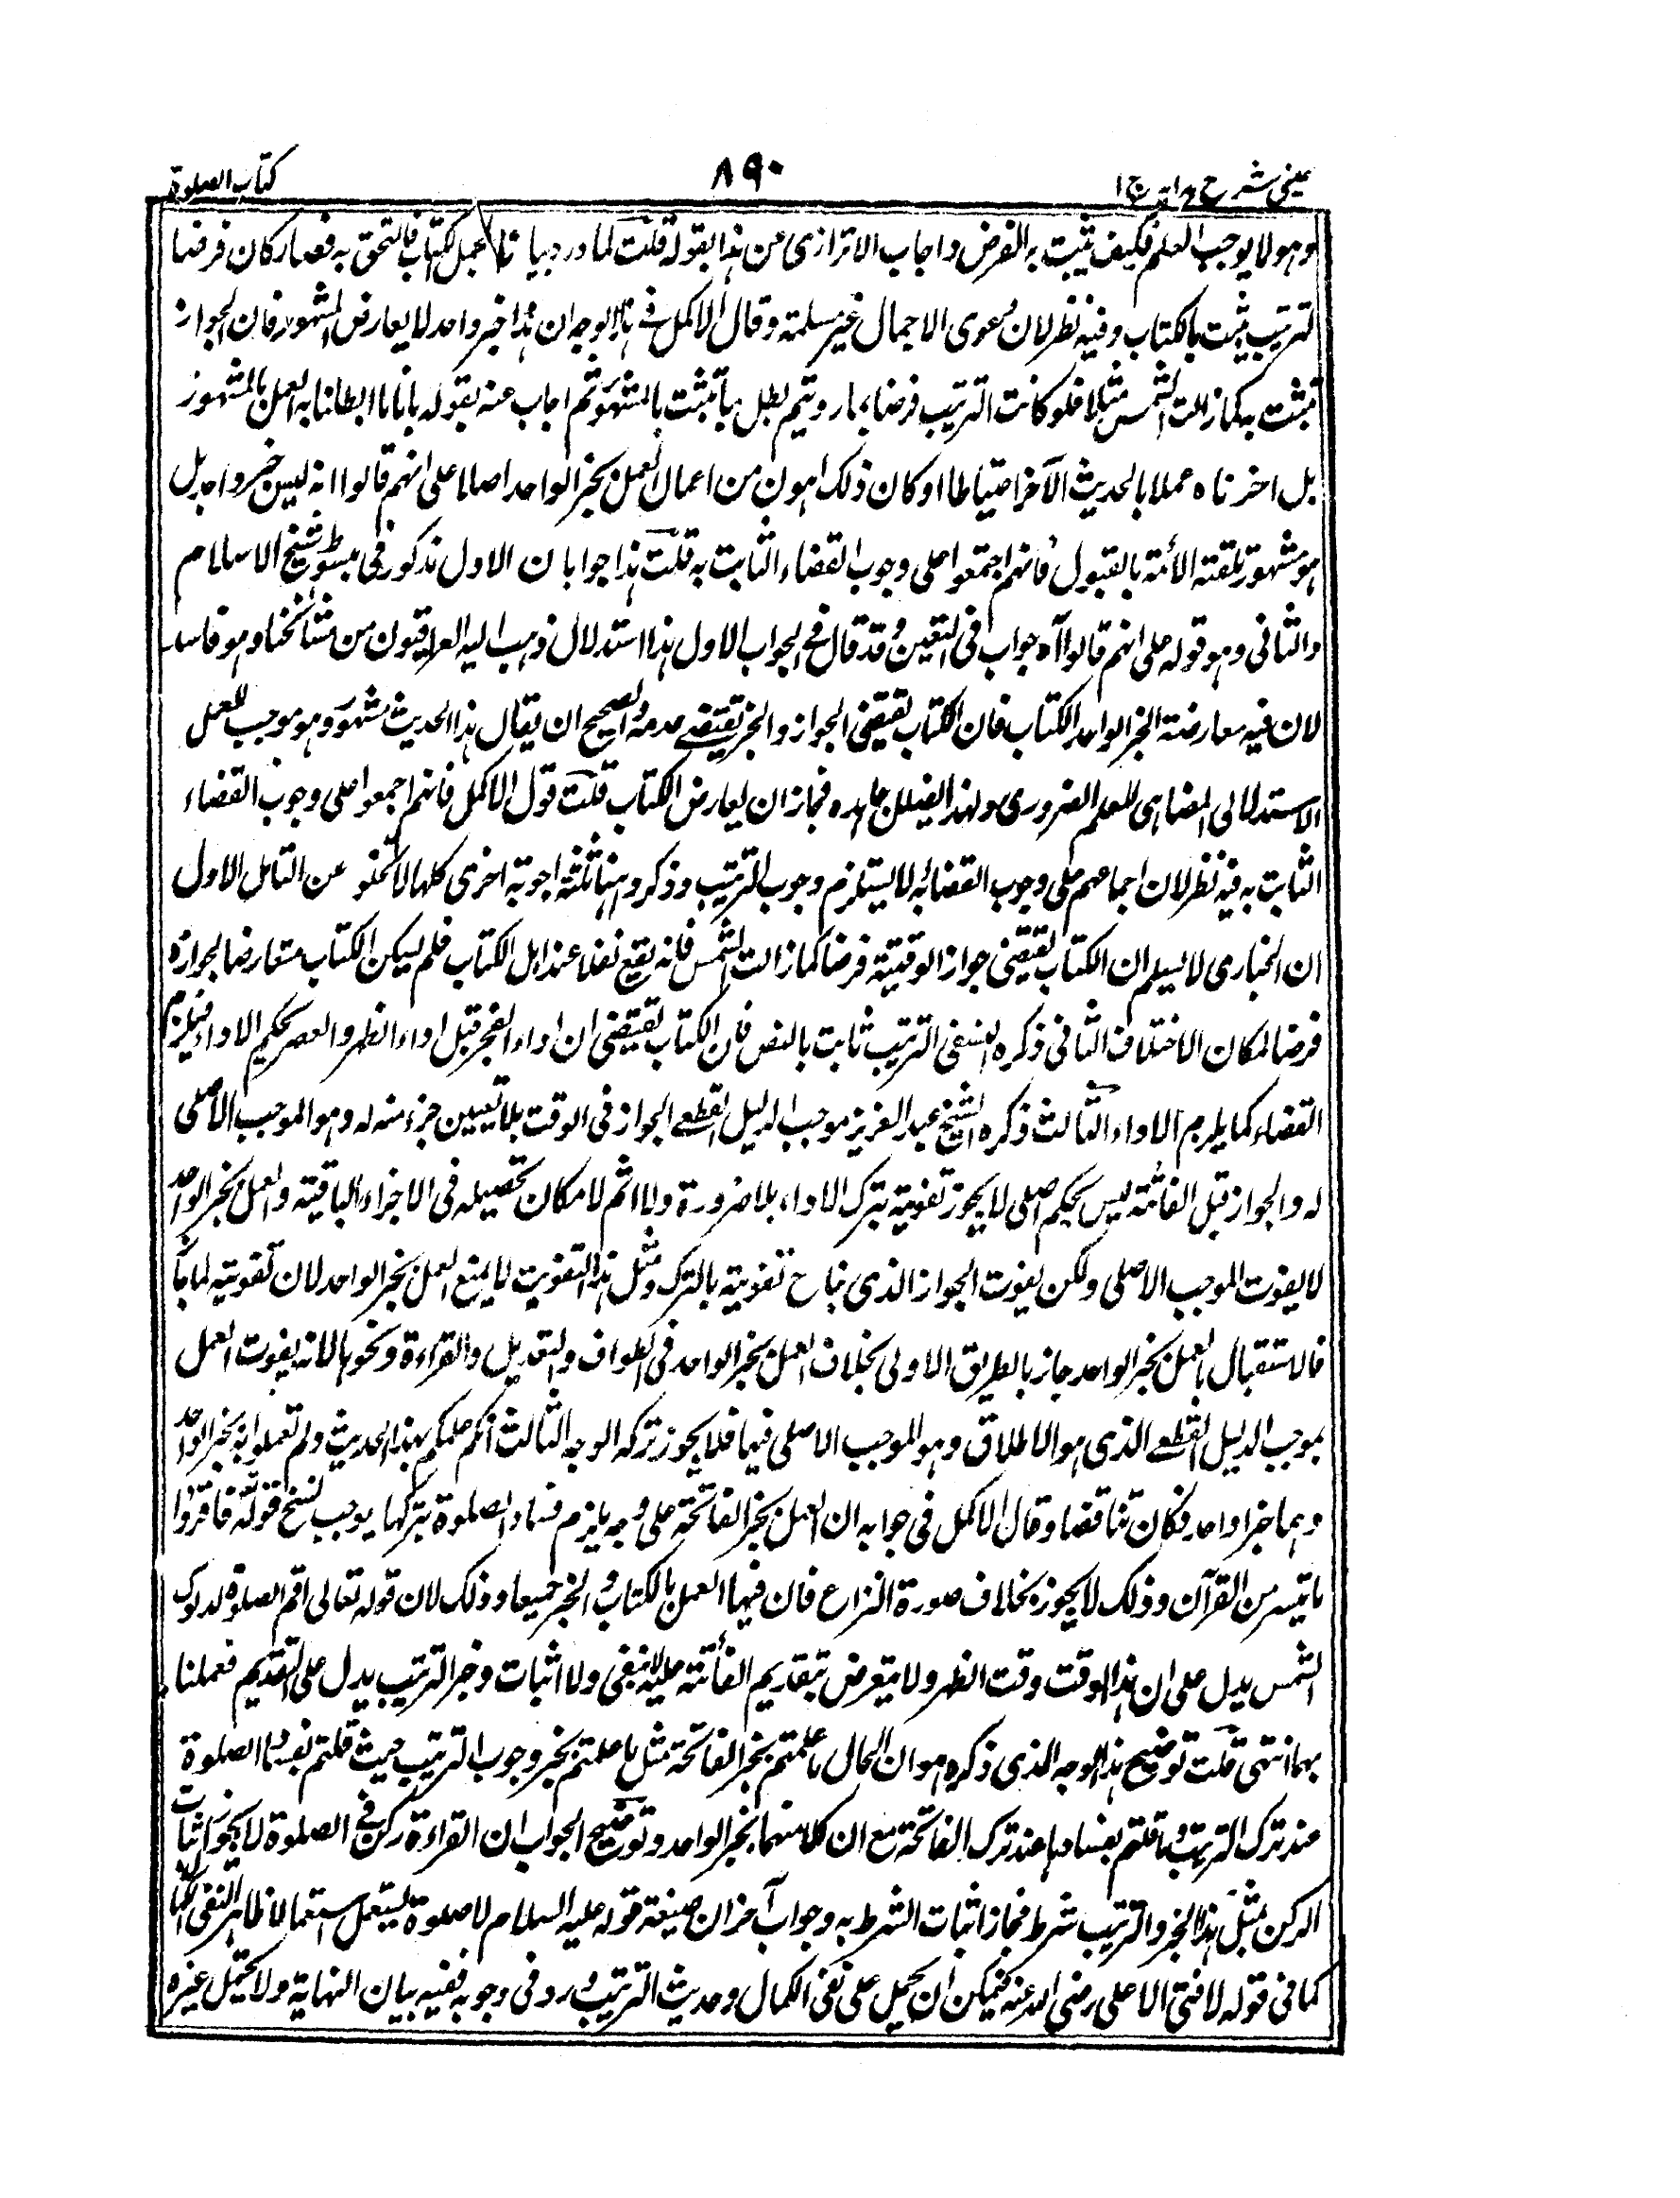 عينى شرح هدايه ج ١
٨٩٠
كتاب الصلوة
وهو لا يوجب العلم فكيف يثبت به الفرض واجاب الاترازى عن هذا بقوله قلت لما ورد بيانا لمجمل الكتاب فالتحق به فصار كان فرضا
لترتيب يثبت بالكتاب وفيه نظر لان دعوى الاجمال غير مسلمة وقال الاكمل فى هذا بوجه ان هذا خبر واحد لا يعارض المشهور فان الجواز
تثبت به كما زالت الشمس مثلا فلو كانت الترتيب فرضا بما رويتم لبطل ما تثبت بالمشهور ثم اجاب عنه بقوله بانا ما ابطلنا به العمل بالمشهور
بل اخرناه عملا بالحديث الآخر احتياطا وكان ذلك اهون من اعمال العمل بخبر الواحد اصلا على انهم قالوا انه ليس خبر واحد بل
هو مشهور تلقته الأئمة بالقبول فانهم اجتمعوا على وجوب القضاء الثابت به قلت هذا جوابان الاول مذكور فى مبسوط شيخ الاسلام
والثانى وهو قوله على انهم قالوا آه جواب فى التعين وقد قال فى الجواب الاول هذا استدلال ذهب اليه العراقيون من مشائخنا وهو فاسد
لان فيه معارضة الخبر الواحد الكتاب فان الكتاب يقتضى الجواز والخبر يقتضى عدمه والصحيح ان يقال هذا الحديث مشهور وهو موجب للعمل
الاستدلالى المضاهى للعلم الضرورى ولهذا يضلل جاحده فجاز ان يعارض الكتاب قلت قول الاكمل فانهم اجمعوا على وجوب القضاء
الثابت به فيه نظر لان اجماعهم على وجوب القضاء به لا يستلزم وجوب الترتيب وذكروا هنا ثلثة اجوبة اخرى كلها لا تخلو عن التامل الاول
ان الخبازى لا يسلم ان الكتاب يقتضى جواز الوقتية فرضا كما زالت الشمس فانه يقع نفلا عند اهل الكتاب فلم يكن الكتاب متعارضا لجوازه
فرضا لمكان الاختلاف الثانى ذكره النسفى الترتيب ثابت بالنص فان الكتاب يقتضى ان اداء الفجر قبل اداء الظهر والعصر بحكم الاداء فيلزم
القضاء كما يلزم الاداء الثالث ذكره الشيخ عبد العزيز موجب الدليل القطعى الجواز فى الوقت بلا تعيين جزء منه له وهو الموجب الاصلى
له والجواز قبل الفائتة ليس بحكم اصلى لا يجوز تفويته بترك الاداء بلا ضرورة ولا اثم لامكان تحصيله فى الاجزاء الباقية والعمل بخبر الواحد
لا يفوت الموجب الاصلى ولكن يفوت الجواز الذى يباح تفويته بالترك ومثل هذا التفويت لا يمنع العمل بخبر الواحد لان تفويته لما جاز
فالاستقبال بالعمل بخبر الواحد جاز بالطريق الاولى بخلاف العمل بخبر الواحد فى الطواف والتعديل والقراءة ونحوها لانه يفوت العمل
بموجب الدليل القطعى الذى هو الاطلاق وهو الموجب الاصلى فيها فلا يجوز تركه الوجه الثالث انكم عملتم بهذا الحديث ولم تعملوا به بخبر الواحد
وهما خبرا واحد فكان تناقضا وقال الاكمل فى جوابه ان العمل بخبر الفاتحة على وجه يلزم فساد الصلوة بتركها يوجب نسخ قوله تعالى فاقرؤا
ما تيسر من القرآن وذلك لا يجوز بخلاف صورة النزاع فان فيها العمل بالكتاب والخبر جميعا وذلك لان قوله تعالى اقم الصلوة لدلوك
الشمس يدل على ان هذا الوقت وقت الظهر ولا يتعرض بتقديم الفائتة عليه لا نفى ولا اثبات وخبر الترتيب يدل على التقديم فعملنا
بهما انتهى قلت توضيح هذا الوجه الذى ذكره هو ان الحال ما عملتم بخبر الفاتحة مثل ما عملتم بخبر وجوب الترتيب حيث قلتم بفساد الصلوة
عند ترك الترتيب وما قلتم بفسادها عند ترك الفاتحة مع ان كلا منهما بخبر الواحد وتوضيح الجواب ان القراءة ركن فى الصلوة لا يجوز اثبات
الركن بمثل هذا الخبر والترتيب شرط فجاز اثبات الشرط به وجواب آخر ان صيغة قوله عليه السلام لا صلوة يستعمل استعمالا ظاهرا لنفى الكمال
كما فى قوله لا فتى الا على رضى الله عنه فيمكن ان يحمل على نفى الكمال وحديث الترتيب ورد فى وجوبه ففيه بيان النهاية ولا يحتمل غيره